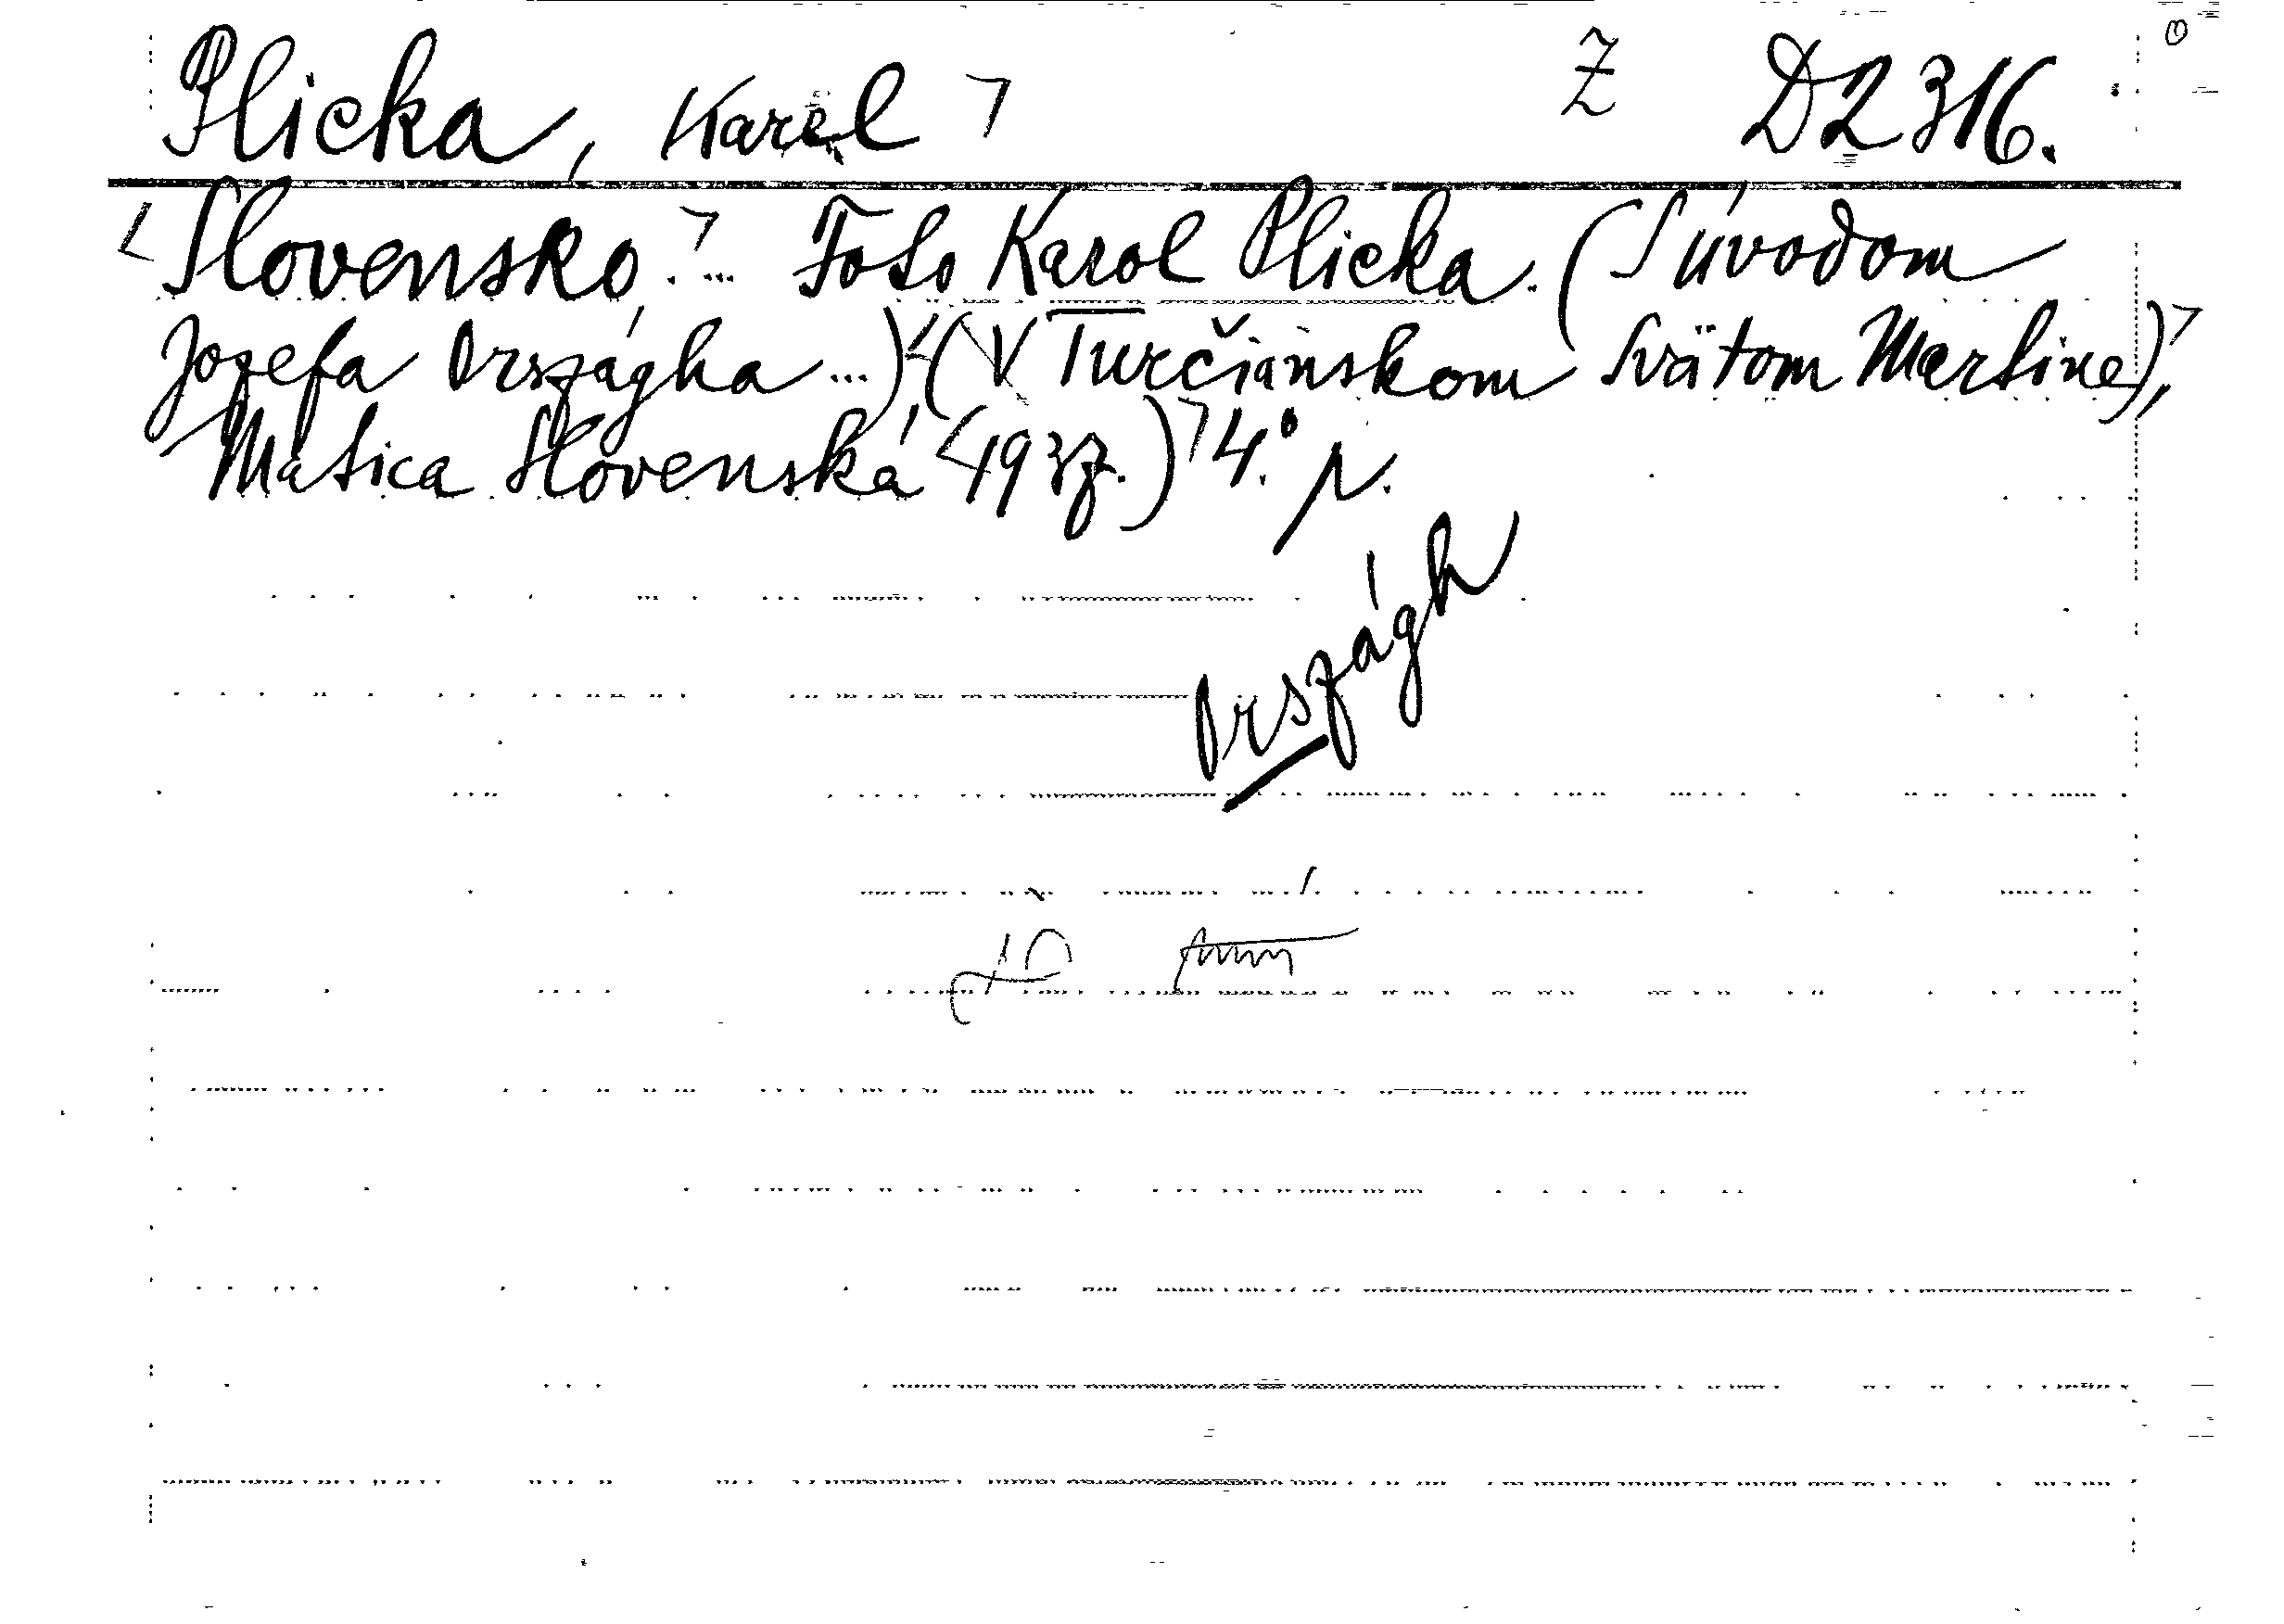 Plicka, Karel Z D2316.
Slovensko. ... Foto Karol Plicka. (S úvodom
Jozefa Országha ...) (V Turčianskom Svätom Martine),
Matica Slovenská 1937.) 4.° p.
Országh